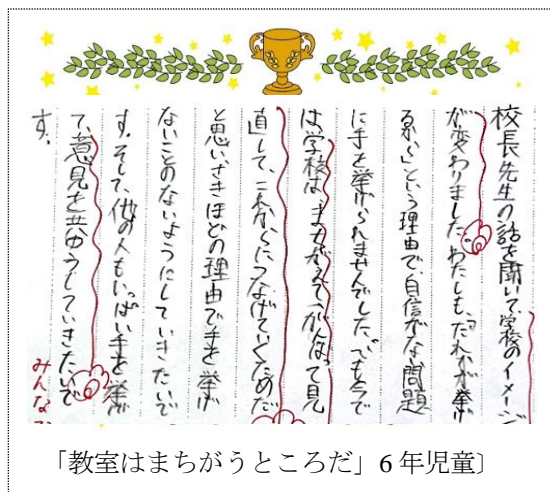 校長先生の話を聞いて、学校のイメージ
が変わりました。わたしも、「だれかが挙げ
るから」という理由で、自信がな 問題
に手を挙げられませんでした。でも今で
は学校は、まちがえて、がんばって見
直して、これからにつなげていくためだ
と思い、さきほどの理由で手を挙げ
ないことのないようにしていきたいで
す。そして、他の人もいっぱい手を挙げ
て、意見を共ゆうしていきたいで
す。
みんな
「教室はまちがうところだ」6年児童〕